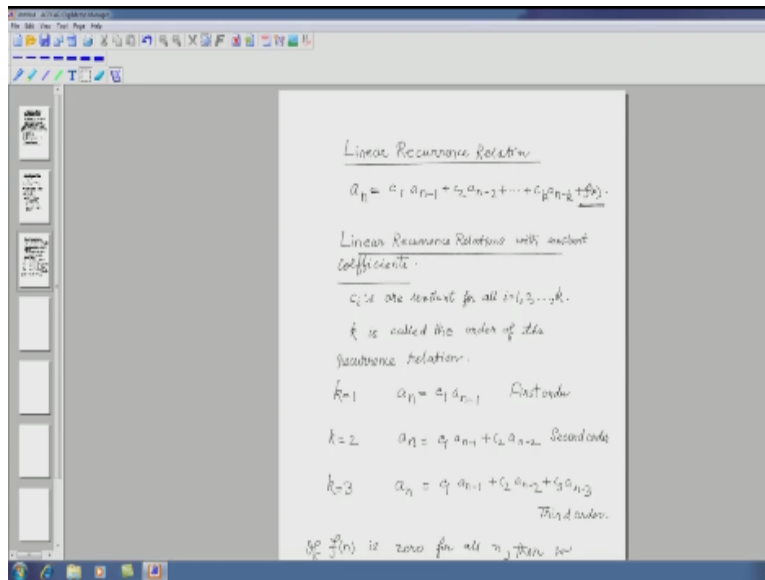 File Edit View Tool Page Help
Linear Recurrence Relation
aₙ = c₁ aₙ₋₁ + c₂ aₙ₋₂ + ⋯ + cₖ aₙ₋ₖ + f(n).
Linear Recurrence Relations with constant
coefficients.
cᵢ's are constant for all i=1, 2, ..., k.
k is called the order of the
recurrence relation.
k=1 aₙ = c₁ aₙ₋₁ First order
k=2 aₙ = c₁ aₙ₋₁ + c₂ aₙ₋₂ Second order
k=3 aₙ = c₁ aₙ₋₁ + c₂ aₙ₋₂ + c₃ aₙ₋₃
Third order.
If f(n) is zero for all n, then